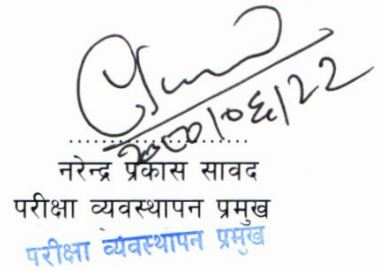 नरेन्द्र प्रकास सावद
परीक्षा व्यवस्थापन प्रमुख
परीक्षा व्यवस्थापन प्रमुख